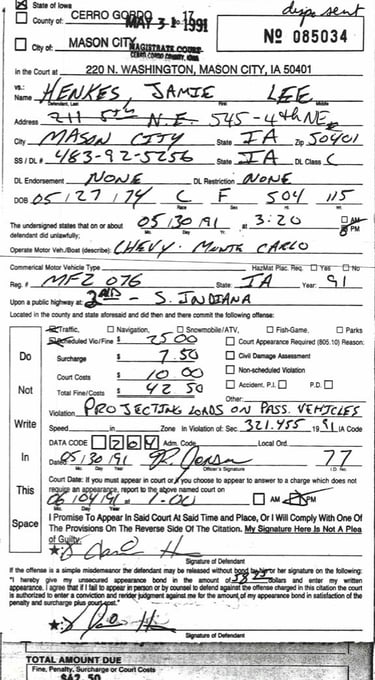 State of Iowa
County of: CERRO GORDO 17
MAY 31 1991
dispo sent
City of: MASON CITY
MAGISTRATE COURT
CERRO GORDO COUNTY, IOWA
No 085034
In the Court at 220 N. WASHINGTON, MASON CITY, IA 50401
vs.: HENKES JAMIE LEE
Defendant, Last First Middle
Address 211 5th N.E. 545-4th NE
City MASON CITY State IA Zip 50401
SS / DL # 483-92-5256 State IA DL Class C
DL Endorsement NONE DL Restriction NONE
DOB 05/27/74 C F 504 115
Mo. Day Year Race Sex Ht. Wt.
The undersigned states that on or about 05/30/91 at 3:20 AM PM
defendant did unlawfully: Mo. Day Yr.
Operate Motor Veh./Boat (describe) CHEVY - MONTE CARLO
Commerical Motor Vehicle Type HazMat Plac. Req. Yes No
Reg. # MFZ 076 State IA Year: 91
Upon a public highway at: 2ND - S. INDIANA
Located in the county and state aforesaid and did then and there commit the following offense:
Traffic, Navigation, Snowmobile/ATV, Fish-Game, Parks
Scheduled Vio/Fine $ 25.00 Court Appearance Required (805.10) Reason:
Surcharge $ 7.50 Civil Damage Assessment
Court Costs $ 10.00 Non-scheduled Violation
Total Fine/Costs $ 42.50 Accident, P.I. P.D.
Other:
Violation PROJECTING LOADS ON PASS. VEHICLES
Speed in Zone In Violation of: Sec. 321.455 1991 IA Code
DATA CODE 264 Adm. Code Local Ord.
In
Dated 05/30/91 77
Mo. Day Year Officer's Signature I.D. No.
Do
Not
Write
In
This
Space
Court Date: If you must appear in court or if you choose to appear to answer to a charge which does not
require an appearance, report to the above named court on
06/04/91 at 1:00 AM PM
Mo. Day Year
I Promise To Appear In Said Court At Said Time and Place, Or I Will Comply With One Of
The Provisions On The Reverse Side Of The Citation. My Signature Here Is Not A Plea
of Guilty.
Signature of Defendant
If the offense is a simple misdemeanor the defendant may be released without bond by his/her signature on the following:
"I hereby give my unsecured appearance bond in the amount of dollars and enter my written
appearance. I agree that if I fail to appear in person or by counsel to defend against the offense charged in this citation the court
is authorized to enter a conviction and render judgment against me for the amount of my appearance bond in satisfaction of the
penalty and surcharge plus court cost."
Signature of Defendant
TOTAL AMOUNT DUE
Fine, Penalty, Surcharge or Court Costs
$42.50